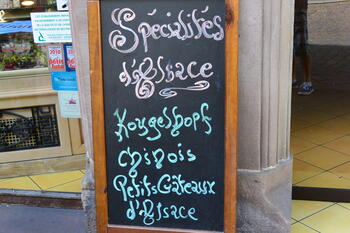 Spécialités
d'Alsace
Kougelhopf
Chinois
Petits Gâteaux
d'Alsace